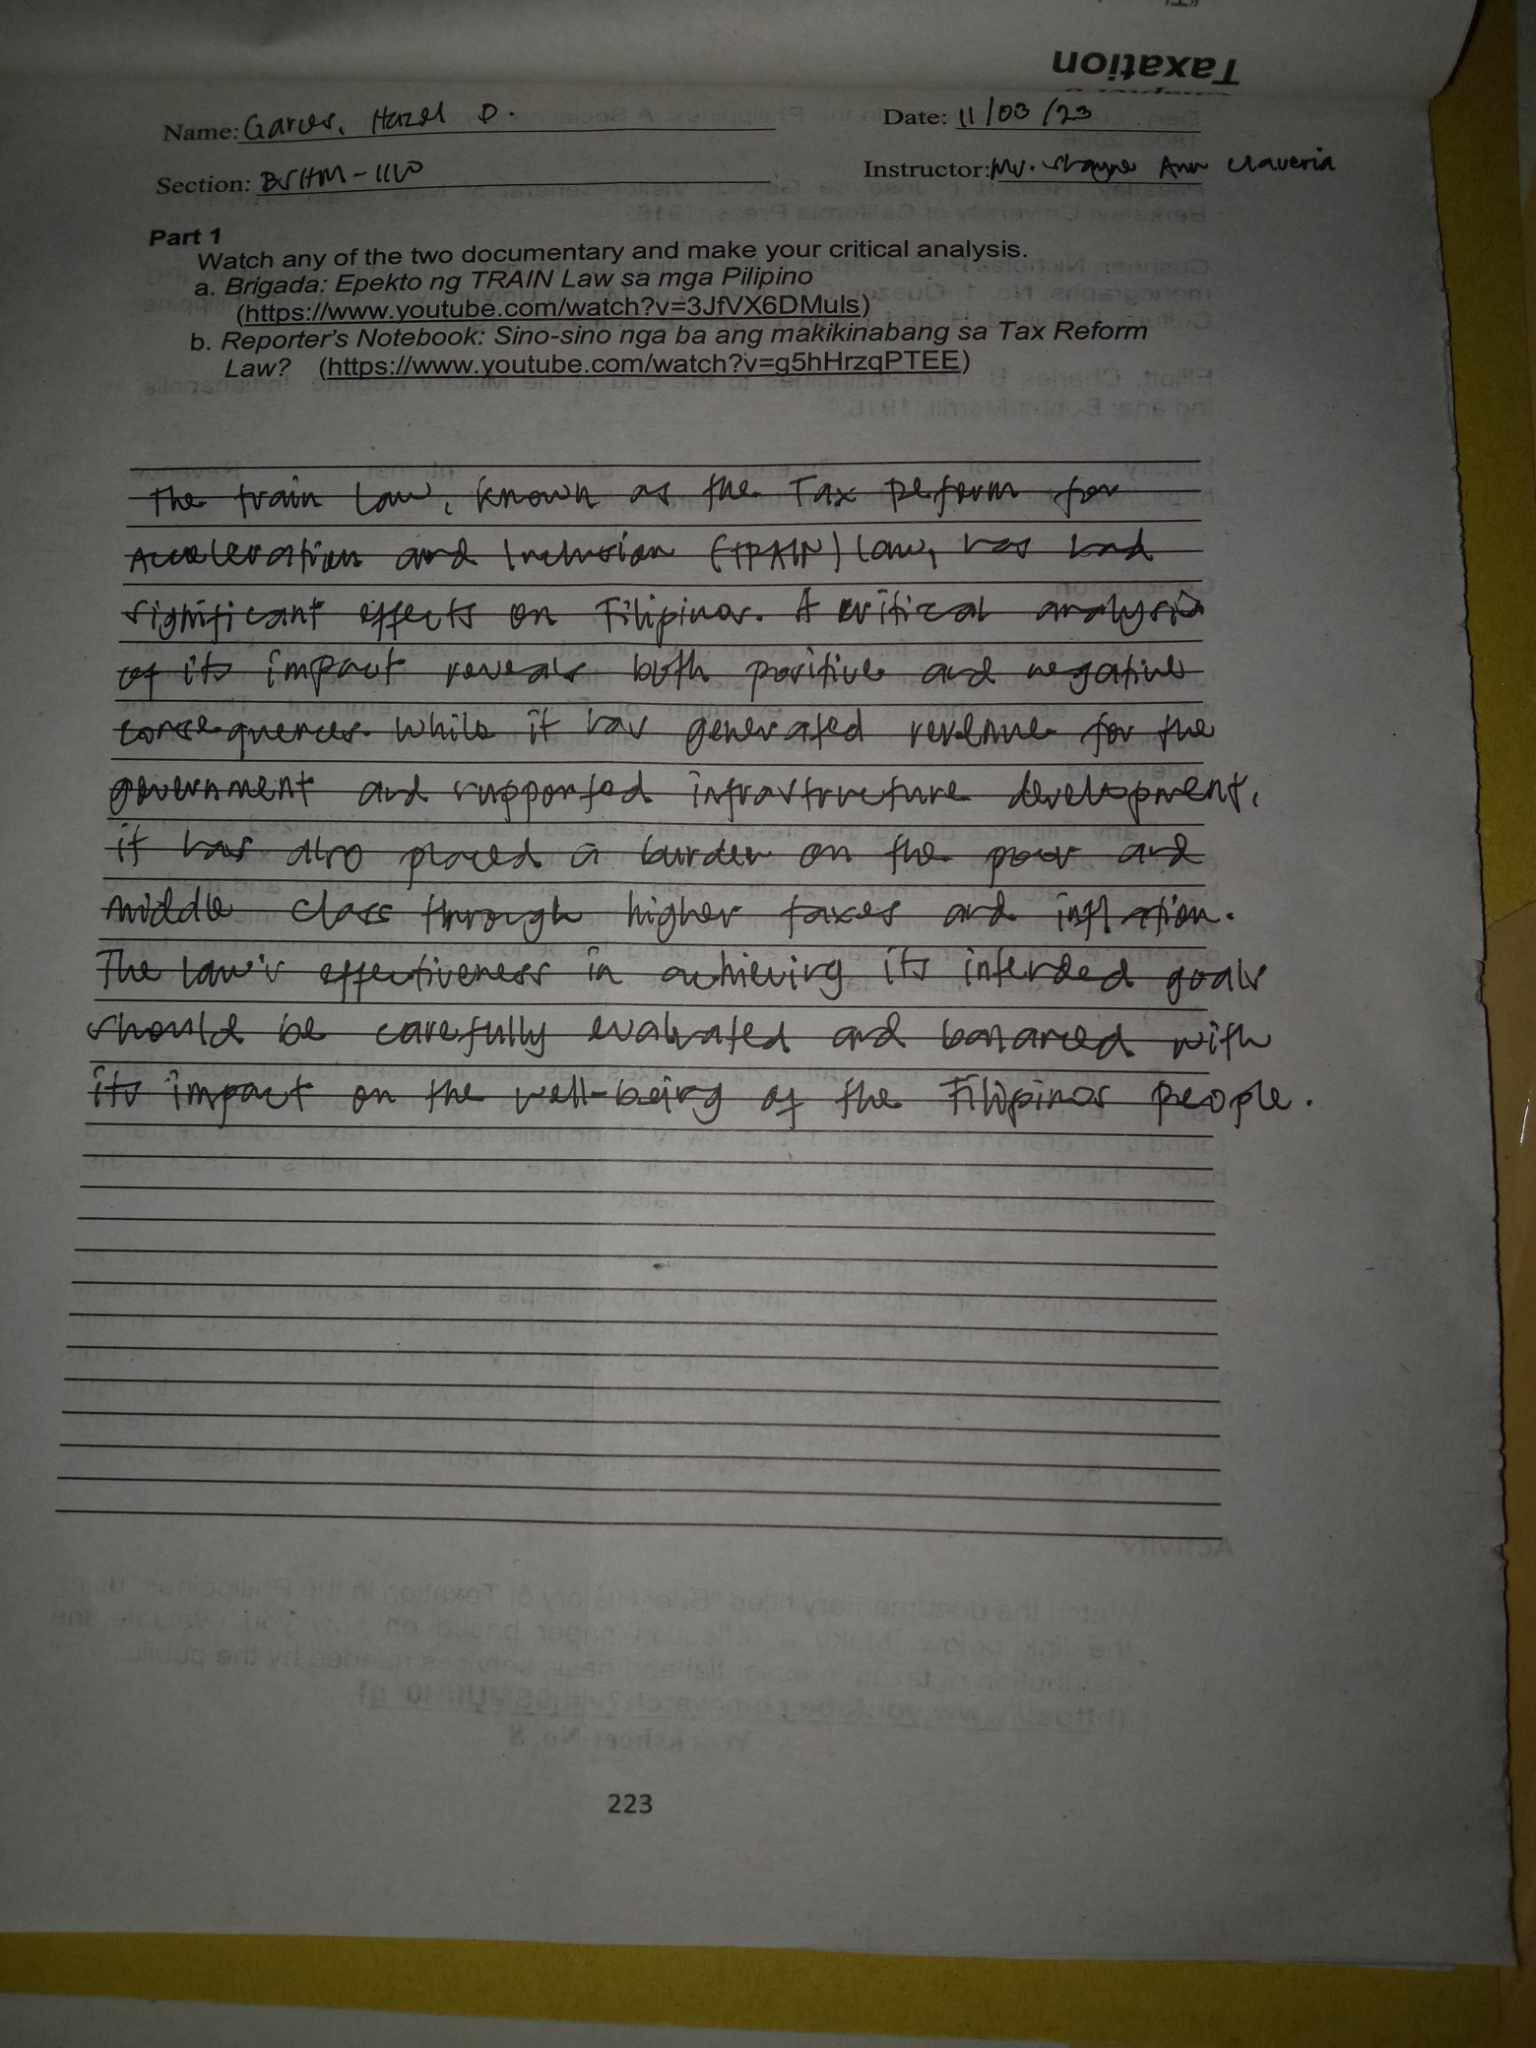 Taxation
Name: Garces, Hazel D. Date: 11/03/23
Section: BSHM-11W Instructor: Ms. Shayne Ann Claveria
Part 1
Watch any of the two documentary and make your critical analysis.
a. Brigada: Epekto ng TRAIN Law sa mga Pilipino
(https://www.youtube.com/watch?v=3JfVX6DMuls)
b. Reporter's Notebook: Sino-sino nga ba ang makikinabang sa Tax Reform
Law? (https://www.youtube.com/watch?v=g5hHrzqPTEE)
The train law, known as the Tax Reform for
Acceleration and Inclusion (TRAIN) law, has had
significant effects on Filipinos. A critical analysis
of its impact reveals both positive and negative
consequences. While it has generated revenue for the
government and supported infrastructure development,
it has also placed a burden on the poor and
middle class through higher taxes and inflation.
The law's effectiveness in achieving its intended goals
should be carefully evaluated and banarced with
its impact on the well-being of the Filipinos people.
223